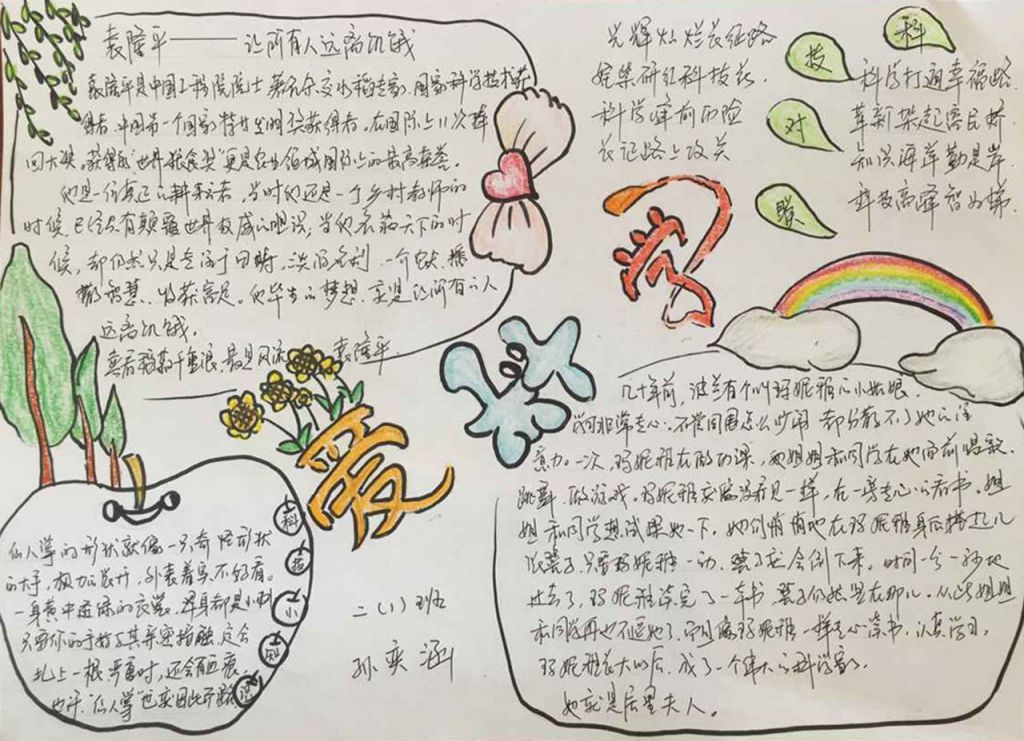 袁隆平——让所有人远离饥饿
袁隆平是中国工程院院士 著名杂交水稻专家，国家科学技术获
得者，中国第一个国家特廿发明奖获得者。在国际上11次捧
回大奖。获得"世界粮食奖"更是农业领域国际上的最高荣誉。
他是一位真正的耕耘者，当时他还是一个乡村教师的
时候，已经具有颠覆世界权威的胆识；当他名获天下的时
候，却仍然只是专注于田畴，淡泊名利，一个农夫，播
撒智慧，收获富足。他毕生的梦想，就是让所有的人
远离饥饿。
喜看稻菽千重浪，最是风流袁隆平。
光辉灿烂长征路
姹紫研红科技花
科学峰前历险
长记路上攻关
科
技
对
联
科学打通幸福路
革新架起富民桥
知识海洋勤是岸
科技高峰智为梯
学
科
爱
几十年前，波兰有个叫玛妮雅的小姑娘，
学习非常专心。不管周围怎么吵闹 都分散不了她的注
意力。一次，玛妮雅在做功课，她姐姐和同学在她面前唱歌、
跳舞、做游戏。玛妮雅就像没看见一样，在一旁专心的看书。姐
姐和同学想试探她一下。她们悄悄地在玛妮雅身后搭起几
张凳子，只要玛妮雅一动，凳子就会倒下来。时间一分一秒地
过去了，玛妮雅读完了一本书，凳子仍然竖在那儿。从此姐姐
和同学再也不逗她了，而且像玛妮雅一样专心读书，认真学习。
玛妮雅长大以后，成了一个伟大的科学家。
她就是居里夫人。
科
普
小
知
识
仙人掌的形状就像一只奇怪形状
的大手，极力的展开，外表着实不好看。
一身黄中透绿的衣裳，浑身都是小刺
只要你的手指与其亲密接触，定会
扎上一根，严重时，还会留血痕
也许"仙人掌"也就因此开
二（1）班
孙奕涵